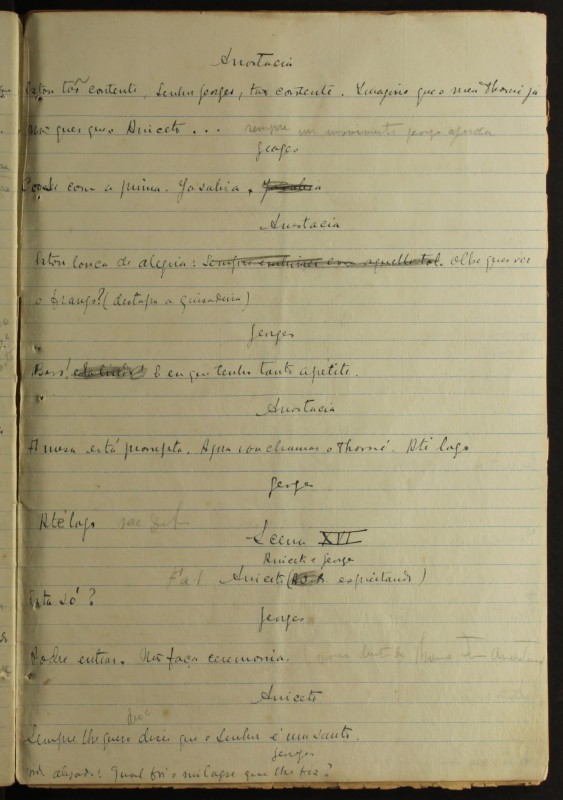 Anastacia
Estou tão contente, Senhor Jorges, tão contente. Imagine que o meu Thomé já
não quer que o Aniceto ... sempre um
Jorges
Case com a prima. Ja sabia.
Anastacia
Estou louca de alegria! Sempre embirrei com aquelle tal. Olhe quer ver
o frango? (destapa a guisadeira)
Jorges
Bravo! E eu que tenho tanto apetite.
Anastacia
A mesa está prompta. Agora vou chamar o Thomé. Até logo
Jorges
Até logo
Scena XVI
Aniceto e Jorge
Aniceto ( espreitando)
Está só?
Jorges
Pode entrar. Não faça ceremonia.
Aniceto
Sempre lhe quero dizer que o Senhor é um santo.
Jorges
Qual foi o milagre que lhe fiz?